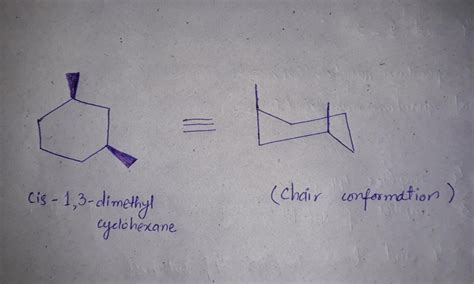 cis-1,3-dimethyl
cyclohexane
(Chair conformation)